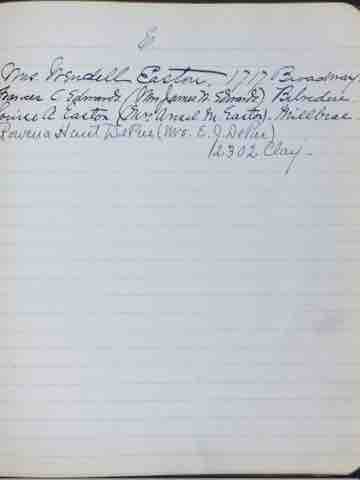 E
Mrs. Wendell Easton 1717 Broadway
Frances C Edwards (Mrs James W. Edwards) Belvedere
Louise A Easton (Mrs Ansel M. Easton). Millbrae.
Rowena Hunt DePue (Mrs. E. J. DePue)
2302 Clay.